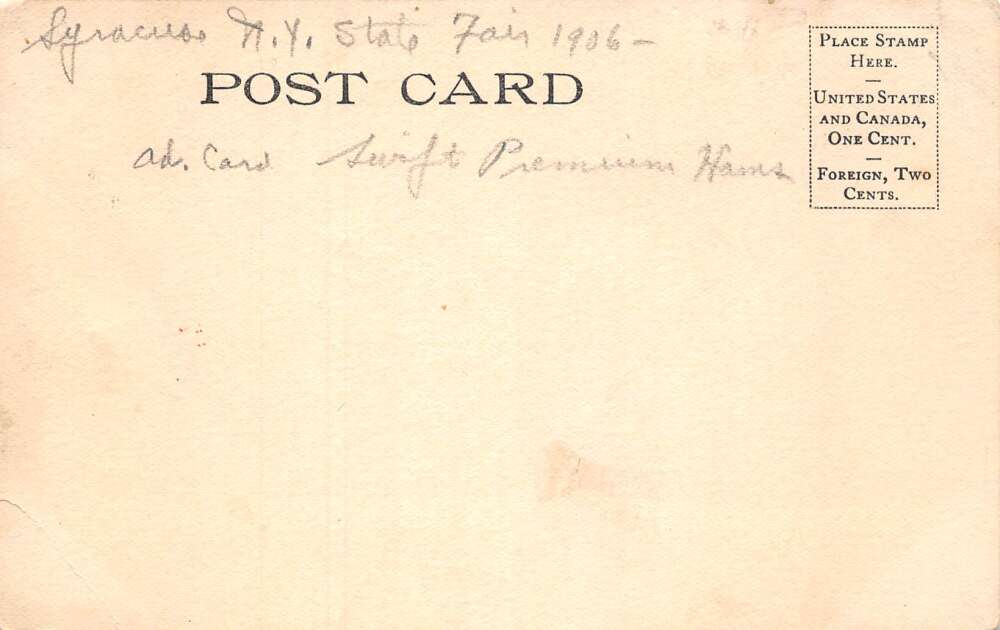 Syracuse N.Y. State Fair 1906-
POST CARD
ad. Card Swift Premium Hams
PLACE STAMP
HERE.
—
UNITED STATES
AND CANADA,
ONE CENT.
—
FOREIGN, TWO
CENTS.